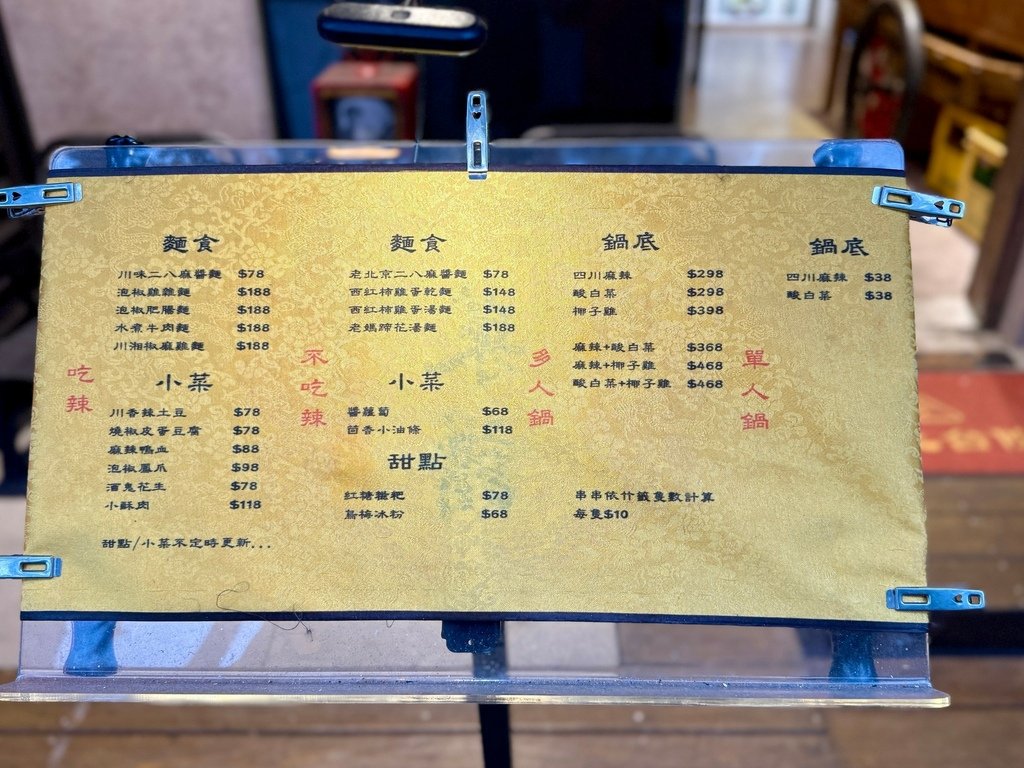 麵食
川味二八麻醬麵 $78
泡椒雞雜麵 $188
泡椒肥腸麵 $188
水煮牛肉麵 $188
川湘椒麻雞麵 $188
吃辣
小菜
川香辣土豆 $78
燒椒皮蛋豆腐 $78
麻辣鴨血 $88
泡椒鳳爪 $98
酒鬼花生 $78
小酥肉 $118
甜點/小菜不定時更新...
麵食
老北京二八麻醬麵 $78
西紅柿雞蛋乾麵 $148
西紅柿雞蛋湯麵 $148
老媽蹄花湯麵 $188
不吃辣
小菜
醬蘿蔔 $68
茴香小油條 $118
甜點
紅糖糍粑 $78
烏梅冰粉 $68
鍋底
四川麻辣 $298
酸白菜 $298
椰子雞 $398
麻辣+酸白菜 $368
麻辣+椰子雞 $468
酸白菜+椰子雞 $468
多人鍋
串串依竹籤隻數計算
每隻$10
鍋底
四川麻辣 $38
酸白菜 $38
單人鍋